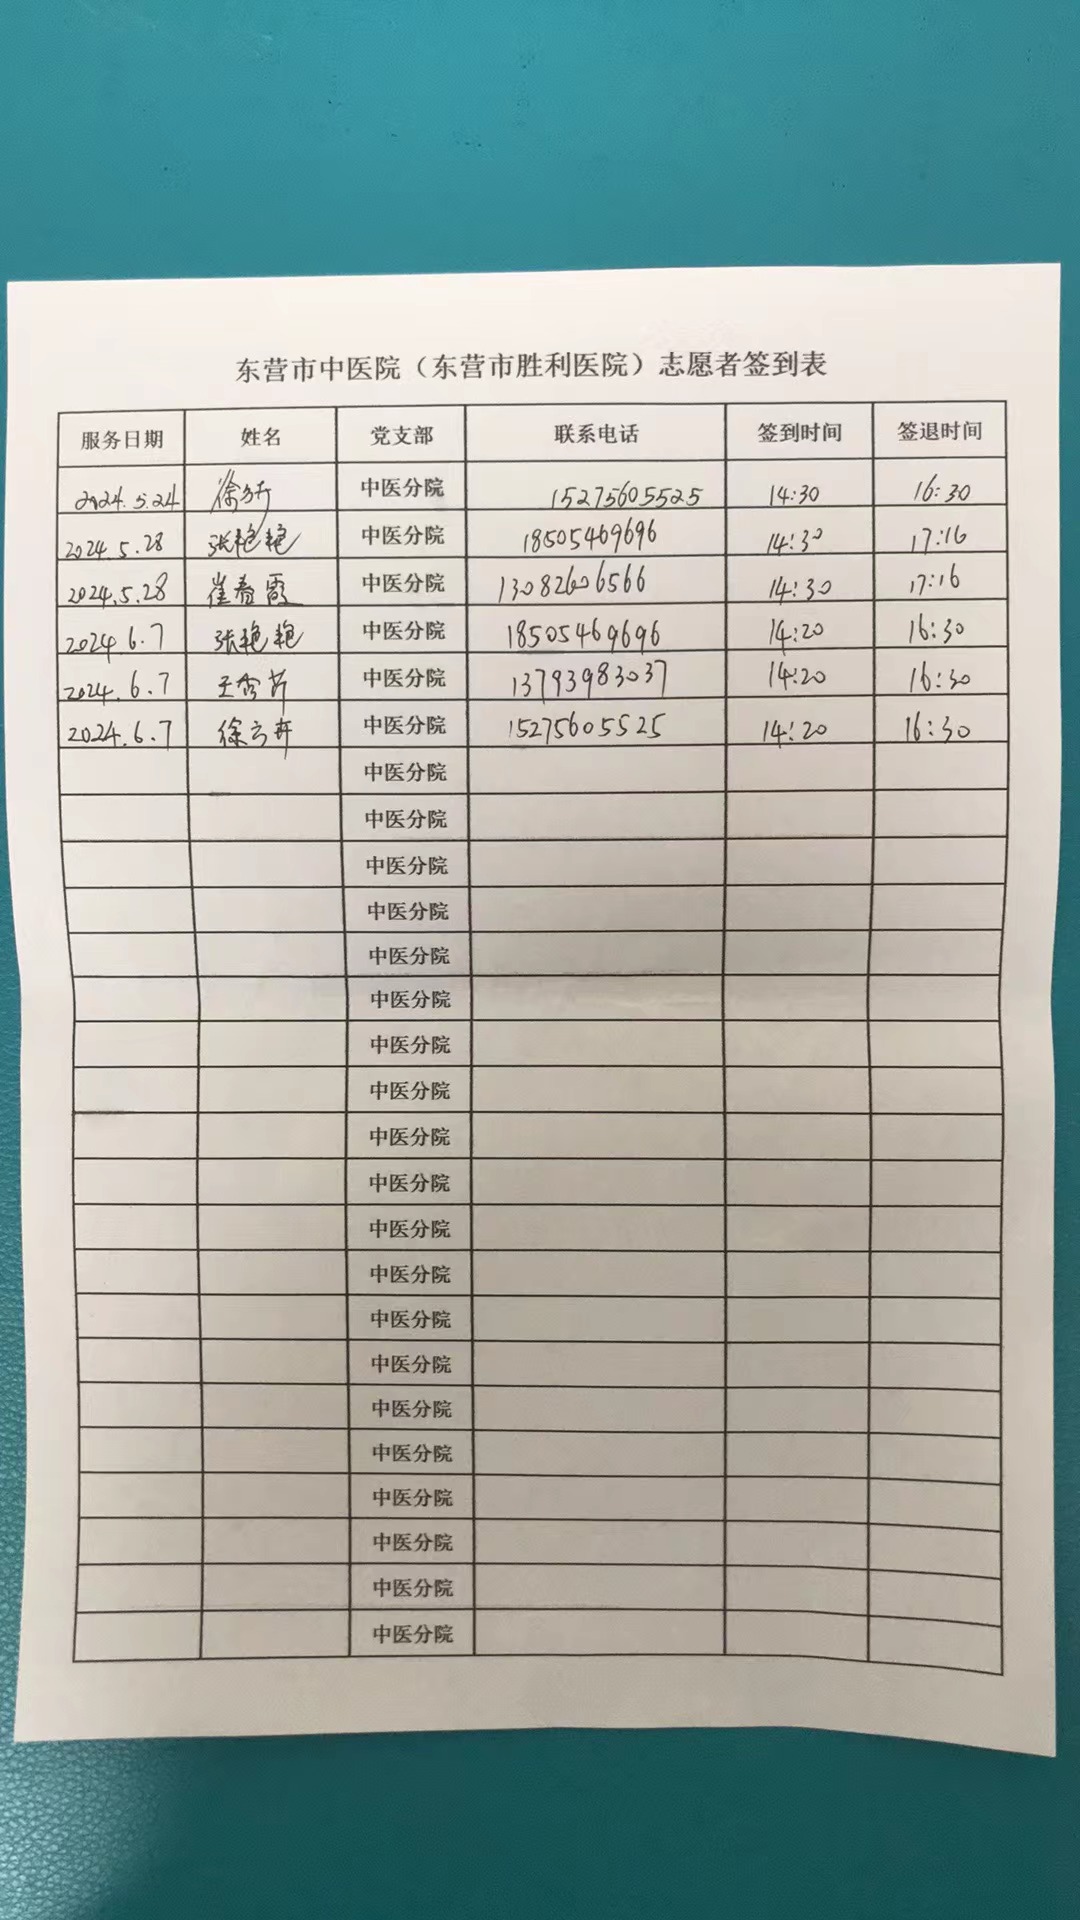 东营市中医院（东营市胜利医院）志愿者签到表
服务日期 姓名 党支部 联系电话 签到时间 签退时间
2024.5.24 徐 中医分院 15275605525 14:30 16:30
2024.5.28 张艳艳 中医分院 18505469696 14:30 17:16
2024.5.28 崔春霞 中医分院 13082606566 14:30 17:16
2024.6.7 张艳艳 中医分院 18505469696 14:20 16:30
2024.6.7 王 中医分院 13793983037 14:20 16:30
2024.6.7 徐方卉 中医分院 15275605525 14:20 16:30
中医分院
中医分院
中医分院
中医分院
中医分院
中医分院
中医分院
中医分院
中医分院
中医分院
中医分院
中医分院
中医分院
中医分院
中医分院
中医分院
中医分院
中医分院
中医分院
中医分院